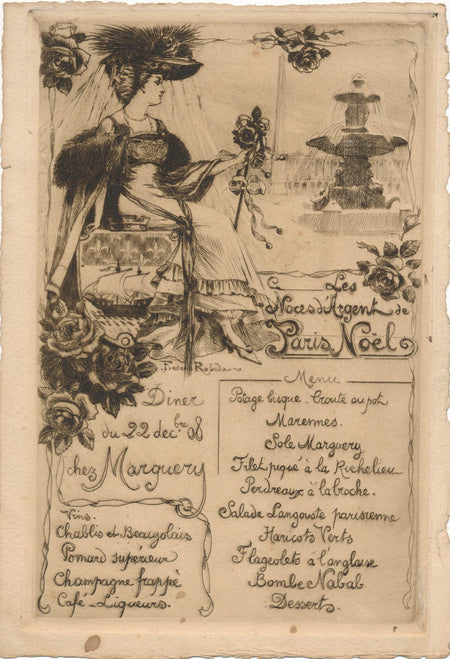 Les
Noces d'Argent de
Paris Noël
Frédéric Robida
Diner
du 22 decbre 08
chez Marguery
Vins.
Chablis et Beaujolais
Pomard superieur
Champagne frappé
Café - Liqueurs.
Menu
Potage bisque - Croute au pot
Marennes.
Sole Marguery
Filet piqué à la Richelieu
Perdreaux à la broche.
Salade Langouste parisienne
Haricots Verts
Flageolets à l'anglaise
Bombe Nabab
Desserts